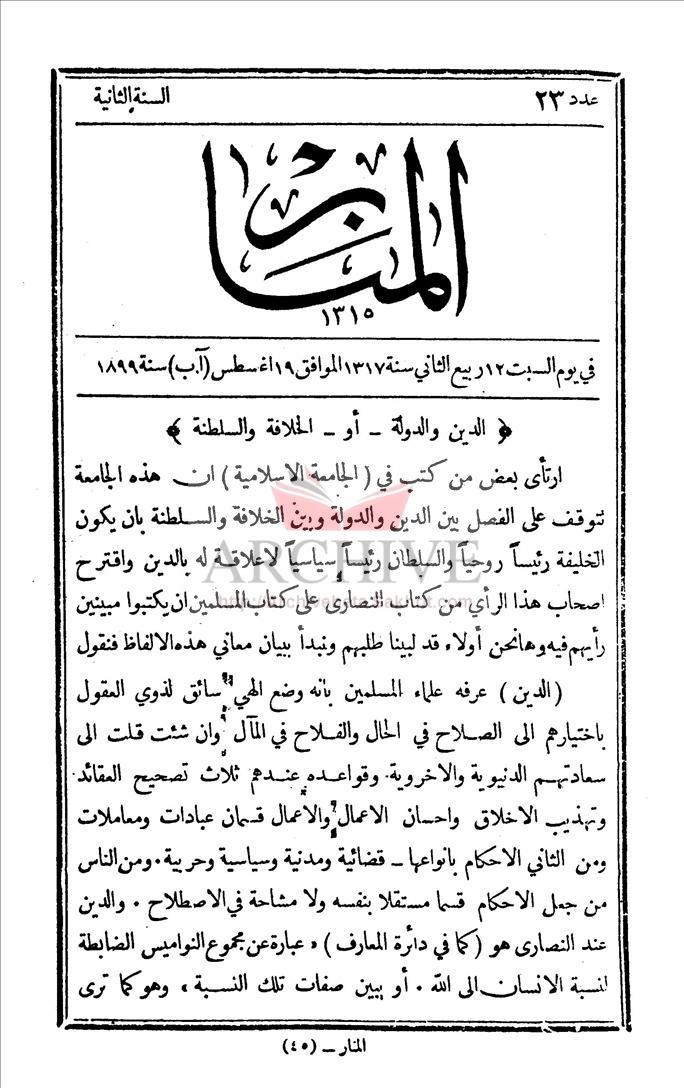 عدد ٢٣
السنة الثانية
المنار
١٣١٥
في يوم السبت ١٢ ربيع الثاني سنة ١٣١٧ الموافق ١٩ اغسطس (آب) سنة ١٨٩٩
﴿ الدين والدولة ـ أو ـ الخلافة والسلطنة ﴾
ارتأى بعض من كتب في (الجامعة الاسلامية) ان هذه الجامعة
تتوقف على الفصل بين الدين والدولة وبين الخلافة والسلطنة بان يكون
الخليفة رئيساً روحياً والسلطان رئيساً سياسياً لا علاقة له بالدين واقترح
اصحاب هذا الرأي من كتاب النصارى على كتاب المسلمين ان يكتبوا مبينين
رأيهم فيه وها نحن أولاء قد لبينا طلبهم ونبدأ ببيان معاني هذه الالفاظ فنقول
(الدين) عرفه علماء المسلمين بانه وضع الهي سائق لذوي العقول
باختيارهم الى الصلاح في الحال والفلاح في المآل وان شئت قلت الى
سعادتهم الدنيوية والاخروية. وقواعده عندهم ثلاث تصحيح العقائد
وتهذيب الاخلاق واحسان الاعمال والاعمال قسمان عبادات ومعاملات
ومن الثاني الاحكام بانواعها ـ قضائية ومدنية وسياسية وحربية. ومن الناس
من جعل الاحكام قسما مستقلا بنفسه ولا مشاحة في الاصطلاح. والدين
عند النصارى هو (كما في دائرة المعارف) «عبارة عن مجموع النواميس الضابطة
لنسبة الانسان الى الله. أو يبين صفات تلك النسبة» وهو كما ترى
المنار ـ (٤٥)
ARCHIVE